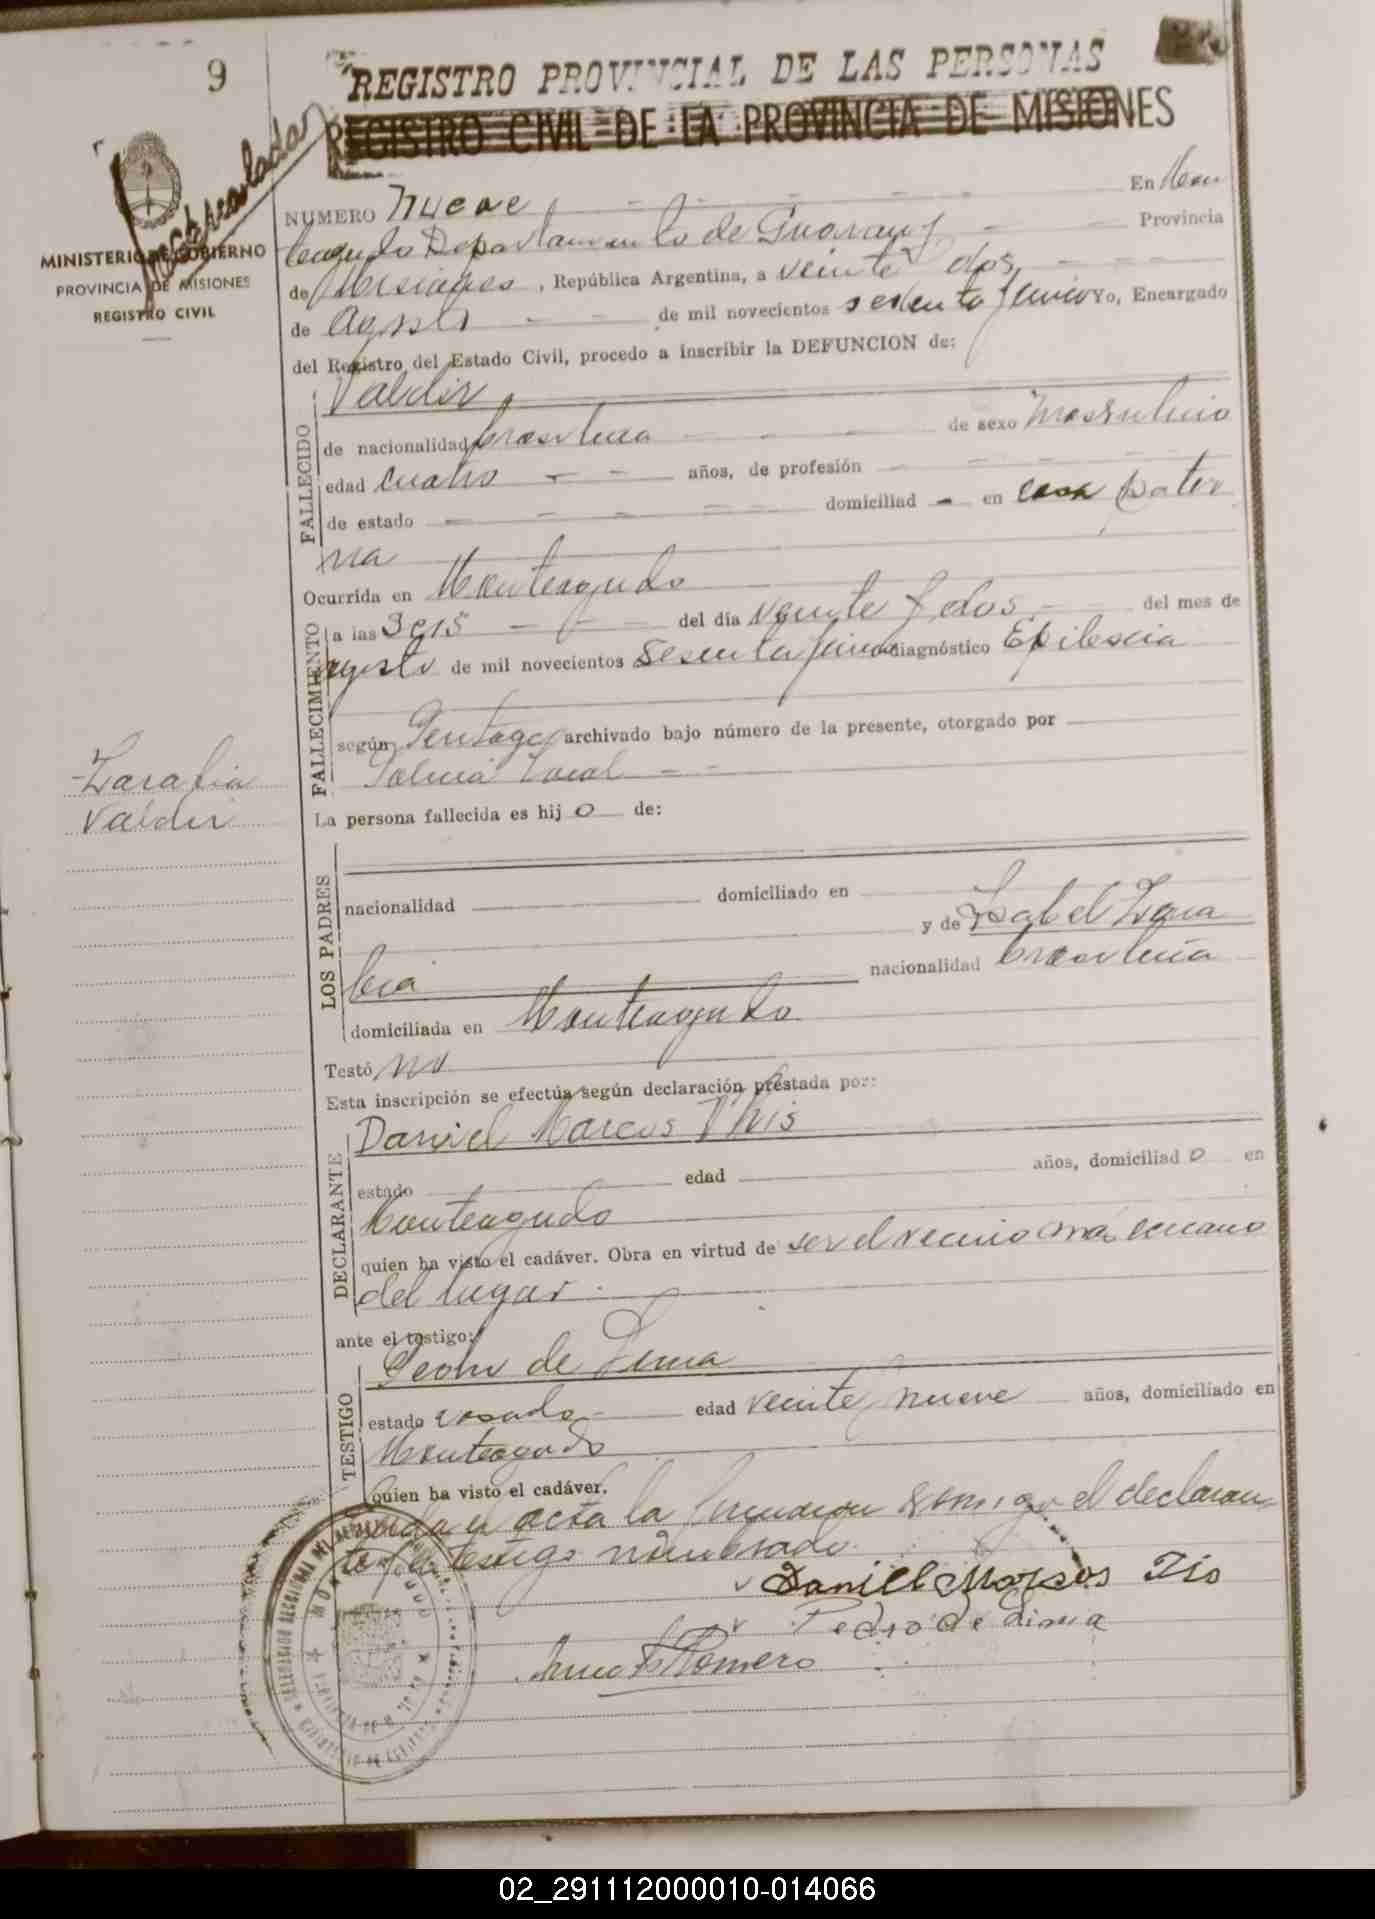 9
REGISTRO PROVINCIAL DE LAS PERSONAS
REGISTRO CIVIL DE LA PROVINCIA DE MISIONES
MINISTERIO DE GOBIERNO
PROVINCIA DE MISIONES
REGISTRO CIVIL
NUMERO Nueve En Mon
teagudo Departamento de Guaraní Provincia
de Misiones, República Argentina, a veinte dos
de Agosto de mil novecientos sesenta y cinco Yo, Encargado
del Registro del Estado Civil, procedo a inscribir la DEFUNCION de:
FALLECIDO
Valdir
de nacionalidad brasilera de sexo Masculino
edad cuatro años, de profesión
de estado domiciliad en casa pater
na
Ocurrida en Monteagudo
FALLECIMIENTO
a las Seis del día veinte y dos del mes de
agosto de mil novecientos Sesenta y cinco diagnóstico Epilecia
según archivado bajo número de la presente, otorgado por
Policia Local
Zarabia
Valdir
La persona fallecida es hij o de:
LOS PADRES
nacionalidad domiciliado en
y de Isabel Zara
bia nacionalidad brasilera
domiciliada en Monteagudo
Testó no
Esta inscripción se efectúa según declaración prestada por:
DECLARANTE
Daniel Marcos
estado edad años, domiciliad o en
Monteagudo
quien ha visto el cadáver. Obra en virtud de ser el vecino más cercano
del lugar
ante el testigo:
TESTIGO
Pedro de Lima
estado casado edad veinte nueve años, domiciliado en
Monteagudo
quien ha visto el cadáver.
Leida el acta la firman conmigo el declaran
te y el testigo nombrado
Daniel Marcos
Pedro de Lima
Romero
02_291112000010-014066